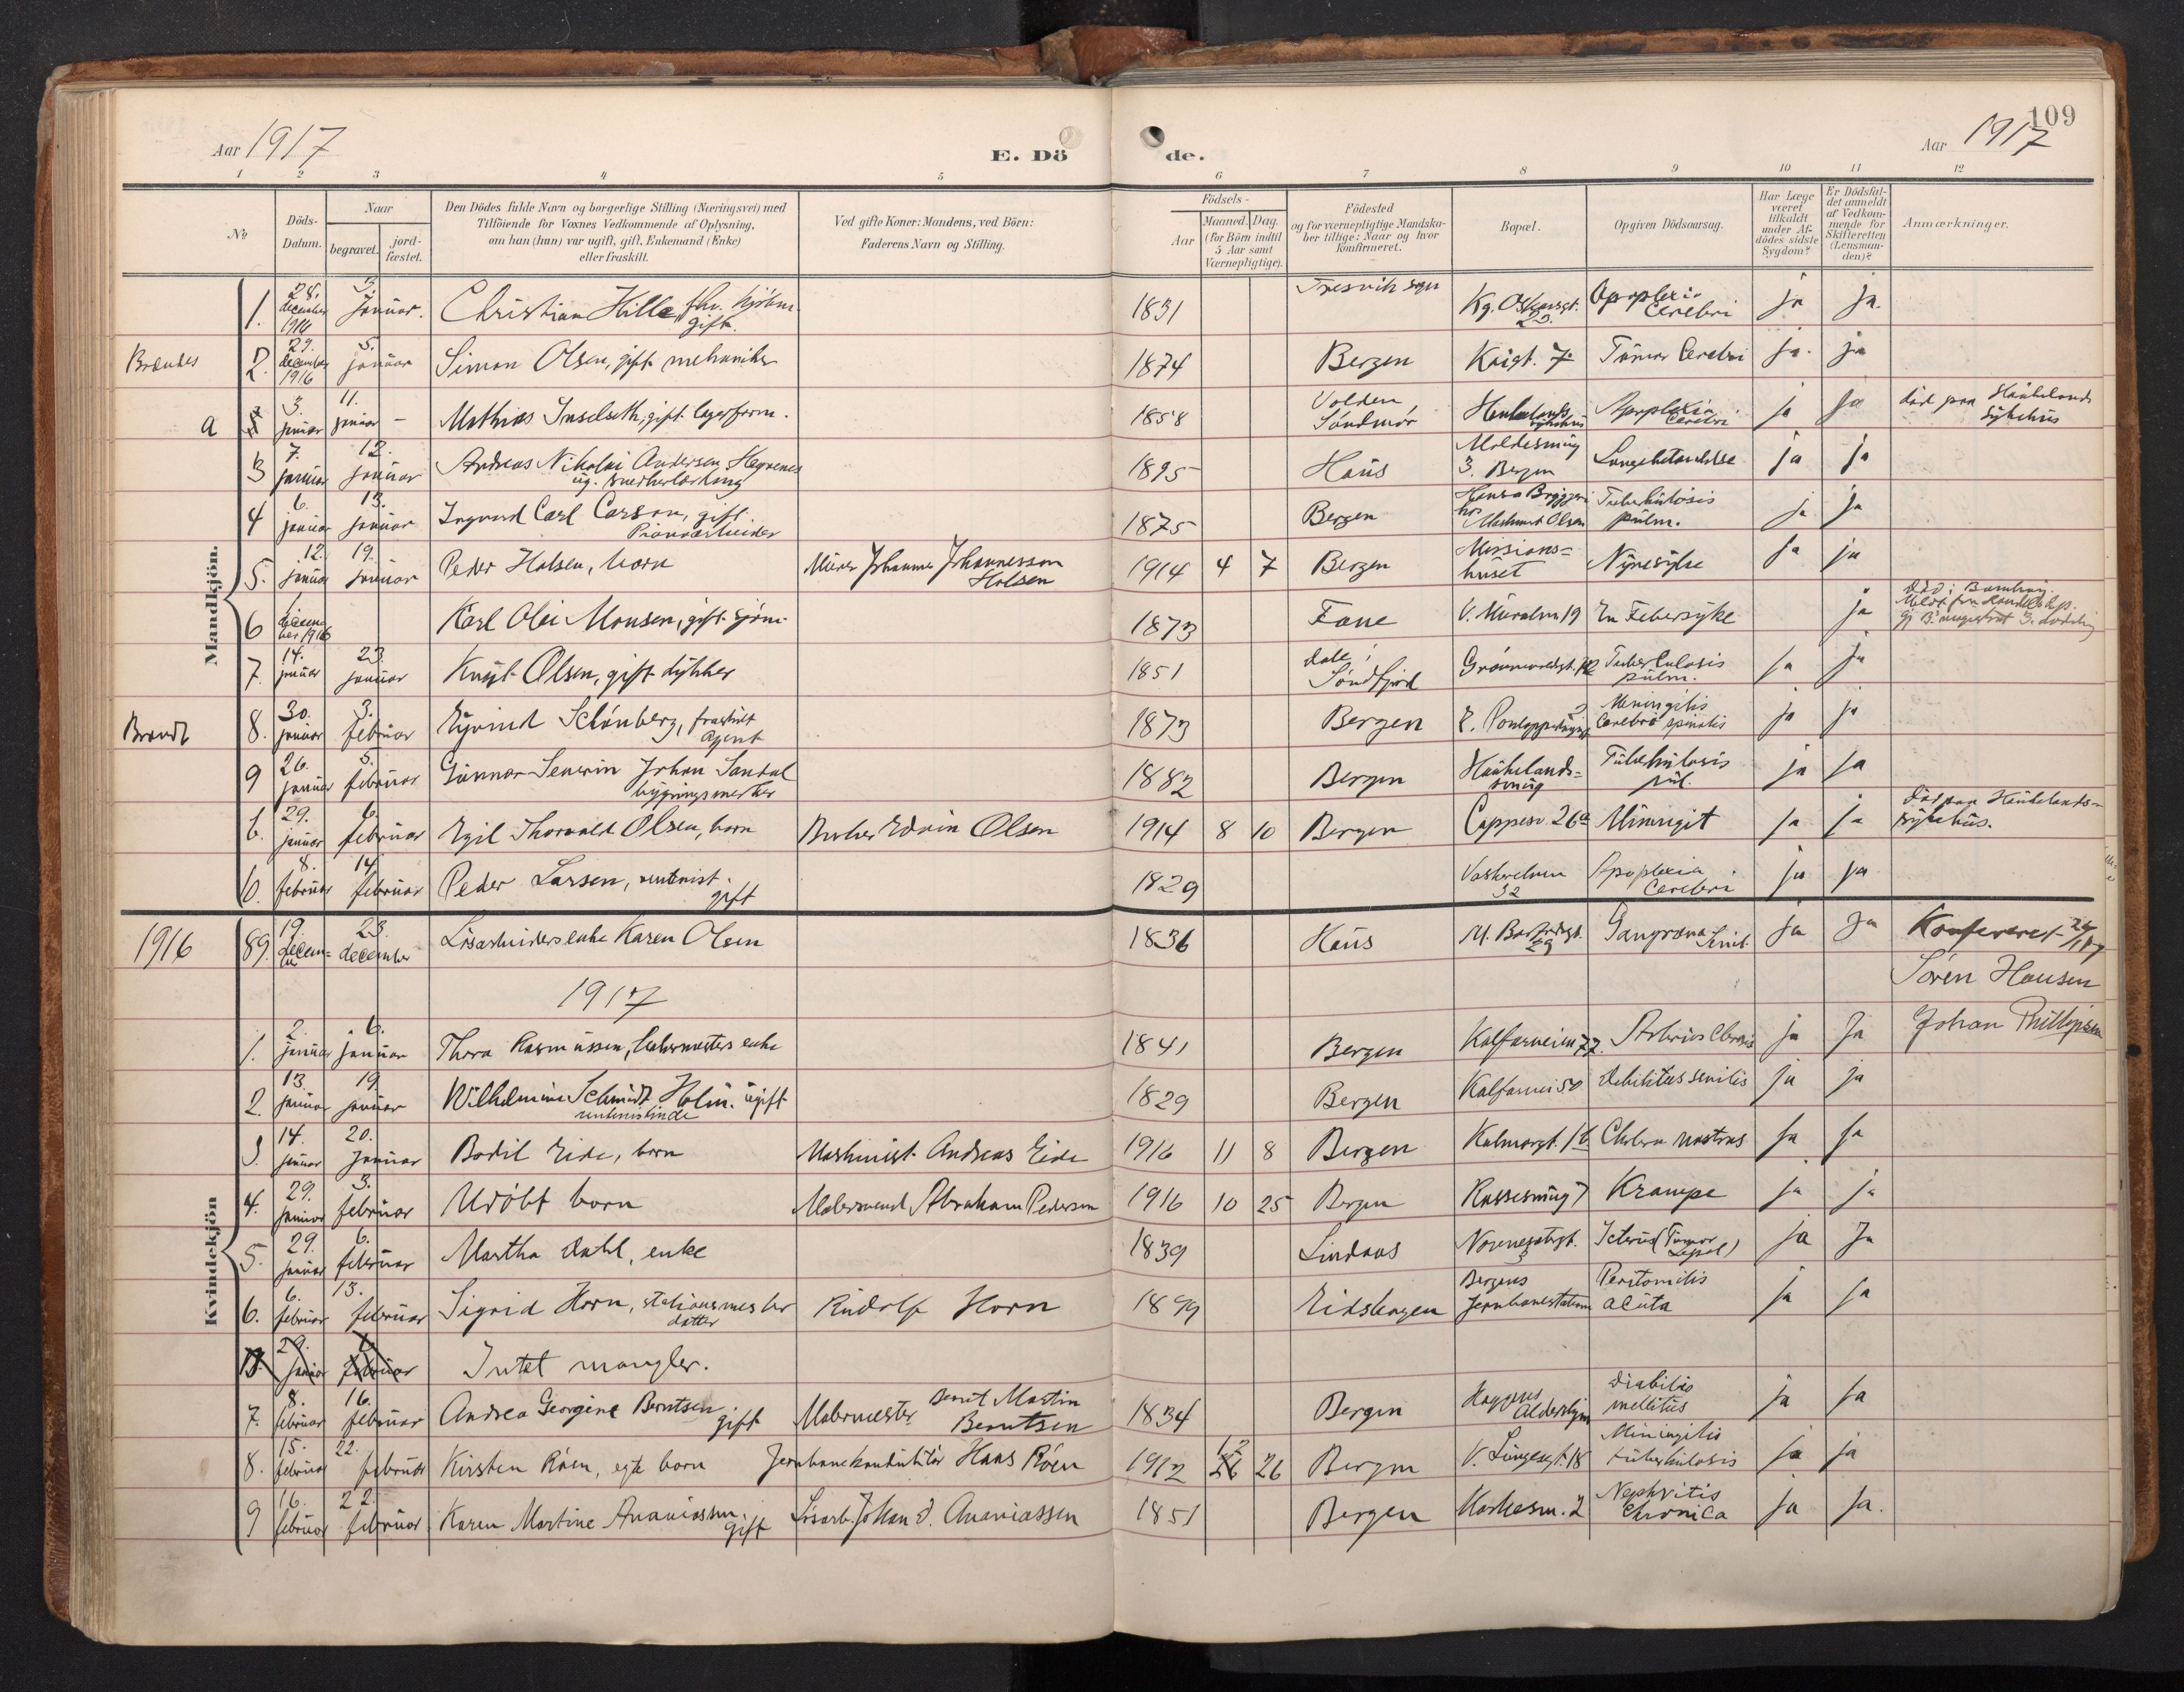 109
Aar 1917
E. Döde.
Aar 1917
1 2 3 4 5 6 7 8 9 10 11 12
№
Döds-Datum.
Naar
begravet. jord-fæstet.
Den Dödes fulde Navn og borgerlige Stilling (Næringsvei) med
Tilföiende for Voxnes Vedkommende af Oplysning,
om han (hun) var ugift, gift, Enkemand (Enke)
eller fraskilt.
Ved gifte Koner: Mandens, ved Börn:
Faderens Navn og Stilling.
Födsels-
Aar Maaned. Dag.
(for Börn indtil
5 Aar samt
Værnepligtige).
Födested
og for værnepligtige Mandska-
ber tillige: Naar og hvor
konfirmeret.
Bopæl.
Opgiven Dödsaarsag.
Har Læge
været
tilkaldt
under Af-
dödes sidste
Sygdom?
Er Dödsfal-
det anmeldt
af Vedkom-
mende for
Skifteretten
(Lensman-
den)?
Anmærkninger.
Mandkjön.
1. 28. december 1916 3. januar. Christian Hille, fhv. kjöbm. gift. 1831 Kg. Oskarsgt. 23. Apoplexia Cerebri ja ja.
2. 29. december 1916 5. januar Simon Olsen, gift mekaniker 1874 Bergen Kaigt. 7. Tumor Cerebri ja. ja
a 3. januar 11. januar – Mathias Inselseth, gift. lagerform. 1858 Volden Söndmör Haukelands sykehus Apoplexia Cerebri ja ja död paa Haukelands sykehus
3 7. januar 12. januar Andreas Nikolai Andersen Hegrenes ug. snedkerlærling 1895 Haus Moldesmug 3. Bergen Lungebetændelse ja ja
4 6. januar 13. januar Ingvard Carl Carson, gift. Pianoarbeider 1875 Bergen Hansa Bryggeri Tuberkulosis pulm. ja ja
5. 12. januar 19. januar Peder Holsen, barn Murer Johannes Johannesson Holsen 1914 4 7 Bergen Missions= huset Nyresyke ja ja
6 december 1916 Karl Olai Monsen, gift. sjöm. 1873 Fane V. Muralm 19 En Febersyke ja
7. 14. januar 23. januar Knut Olsen, gift dykker 1851 dale i Söndfjord Tuberculosis pulm. ja ja
8. 30. januar 3. februar Eyvind Schönberg, fraskilt agent 1873 Bergen Meningitis Cerebro spinalis ja ja
9 26. januar 5. februar Gunnar Severin Johan Sandal bygningsmester 1882 Bergen Haukelands= smug Tuberkulosis pul. ja ja
b. 29. januar 6. februar Egil Thorvald Olsen, barn Edvin Olsen 1914 8 10 Bergen Cappesv. 26a Miningit ja ja död paa Haukelands= sykehus.
10. 8. februar 14 februar Peder Larsen, rentenist. gift 1829 32 Apoplexia Cerebri ja ja
1916 89. 19. december 23. december Lösarbeiders enke Karen Olsen 1836 Haus 29 Gangræna Senil. ja ja Konfereret
Sören Hansen
1917
Johan Phillipsen
Kvindekjön
1. 2. januar 6. januar Thora Rasmussen, enke 1841 Bergen Kalfarveien 77. ja ja
2. 13. januar 19. januar Wilhelmine Schmidt Holm. ugift rentenistinde 1829 Bergen Kalfarvei 50 debilitas senilis ja ja
3. 14. januar 20. januar Bodil Eide, barn Maskinist Andreas Eide 1916 11 8 Bergen Kalmargt. Cholera nostras ja ja
4. 29. januar 3. februar Udöbt barn Malersvend Abraham Pedersen 1916 10 25 Bergen Krampe ja ja
5. 29. januar 6. februar Martha Dahl, enke 1839 Lindaas Icterus (Tumor) ja ja
6. 6. februar 13. februar Sigrid Horn, stationsmester datter Rudolf Horn 1899 Eidsbergen Bergens Jernbanestation Peritonitis acuta ja ja
29. januar 6. februar Intet mangler.
7. 8. februar 16. februar Andrea Georgine Berntsen gift Malermester Bernt Martin Berntsen 1834 Bergen Aldershjem Diabilis mellitus ja ja
8. 15. februar 22. februar Kirsten Röen, egte barn Jernbanekonduktör Hans Röen 1912 12 26 Bergen V. Lungegt. 18 Miningitis tuberkulosis ja ja
9 16. februar 22. februar Karen Martine Ananiassen. gift Lösarb. Johan Ananiassen 1851 Bergen Markesm. 2 Nephritis Chronica ja ja.